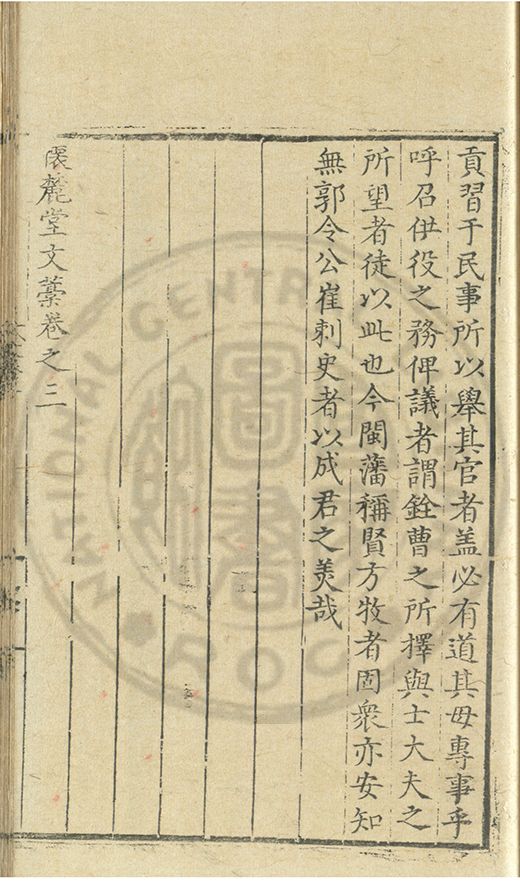 貢習于民事所以舉其官者盖必有道其毋專事乎
呼召供役之務俾議者謂銓曹之所擇與士大夫之
所望者徒以此也今閩藩稱賢方牧者固衆亦安知
無郭令公崔刺史者以成君之美哉
懷麓堂文藁卷之三